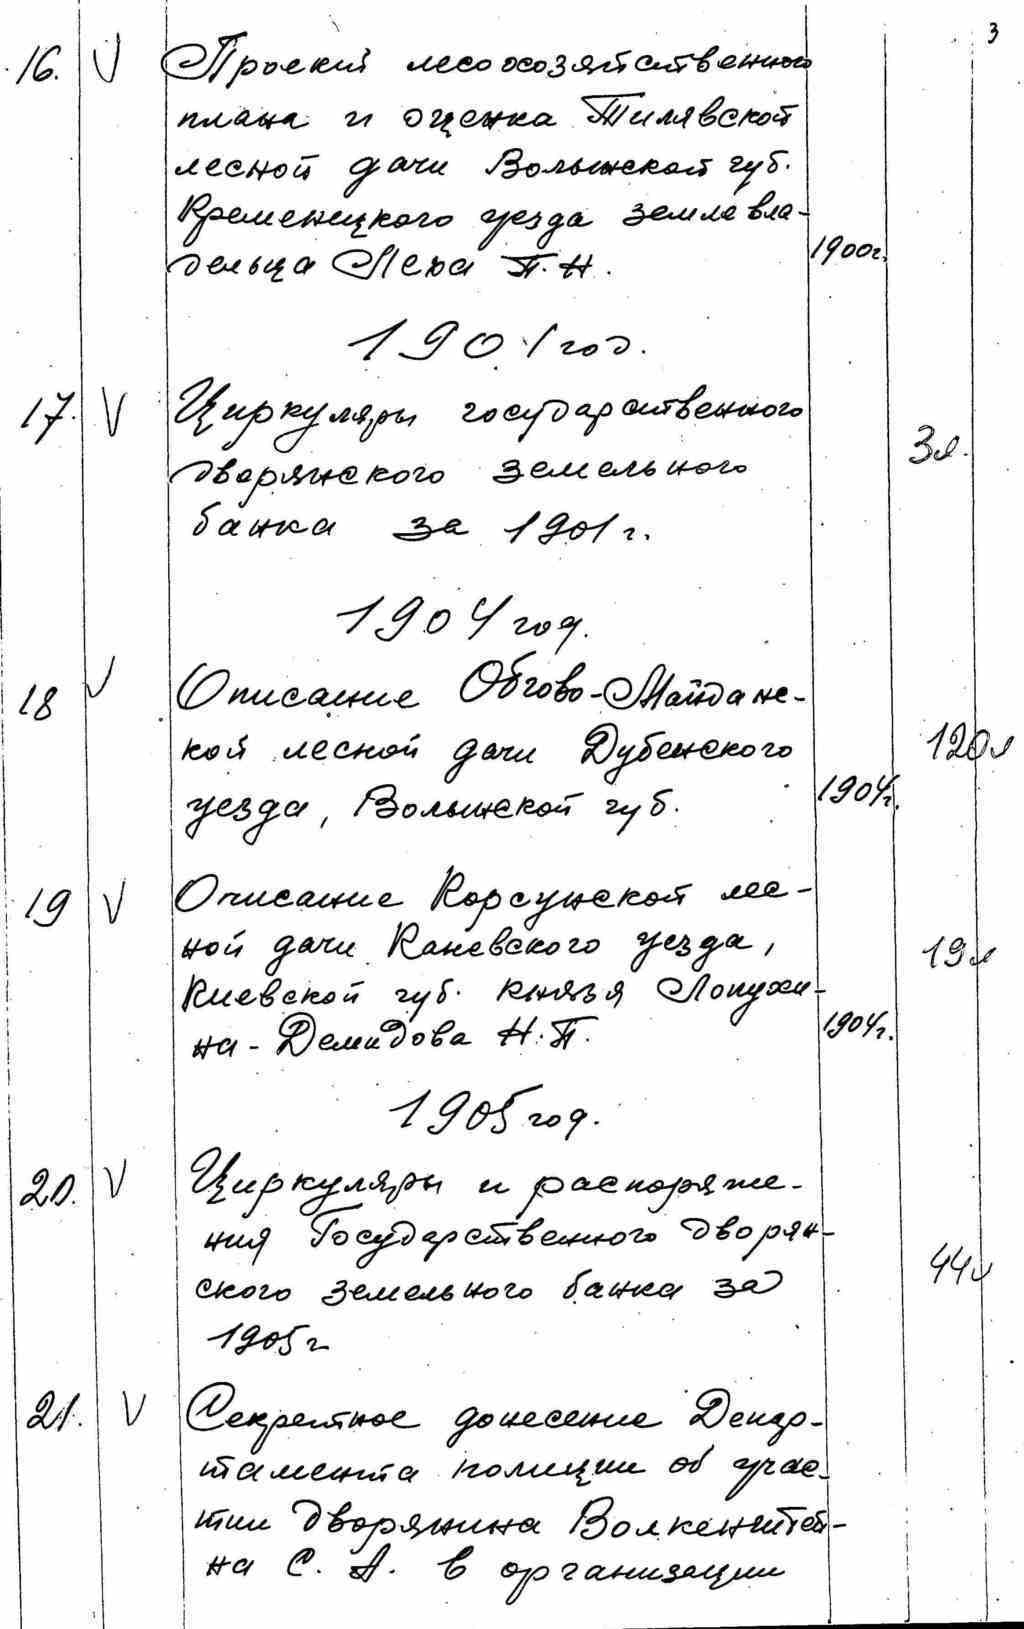 3
16. V Проект лесохозяйственного
плана и оценка Тилявской
лесной дачи Волынской губ.
Кременецкого уезда землевла-
дельца П. Н. 1900г.
1901 год.
17. V Циркуляры государственного
дворянского земельного 3л.
банка за 1901 г.
1904 год.
18 V Описание Обгово-Майданс-
кой лесной дачи Дубенского 120л
уезда, Волынской губ. 1904г.
19 V Описание Корсунской лес-
ной дачи Каневского уезда, 19л
Киевской губ. князя Лопухи-
на-Демидова Н. П. 1904г.
1905 год.
20. V Циркуляры и распоряже-
ния Государственного дворян-
ского земельного банка за 44л
1905г
21. V Секретное донесение Депар-
тамента полиции об учас-
тии дворянина Волкенштей-
на С. А. в организации